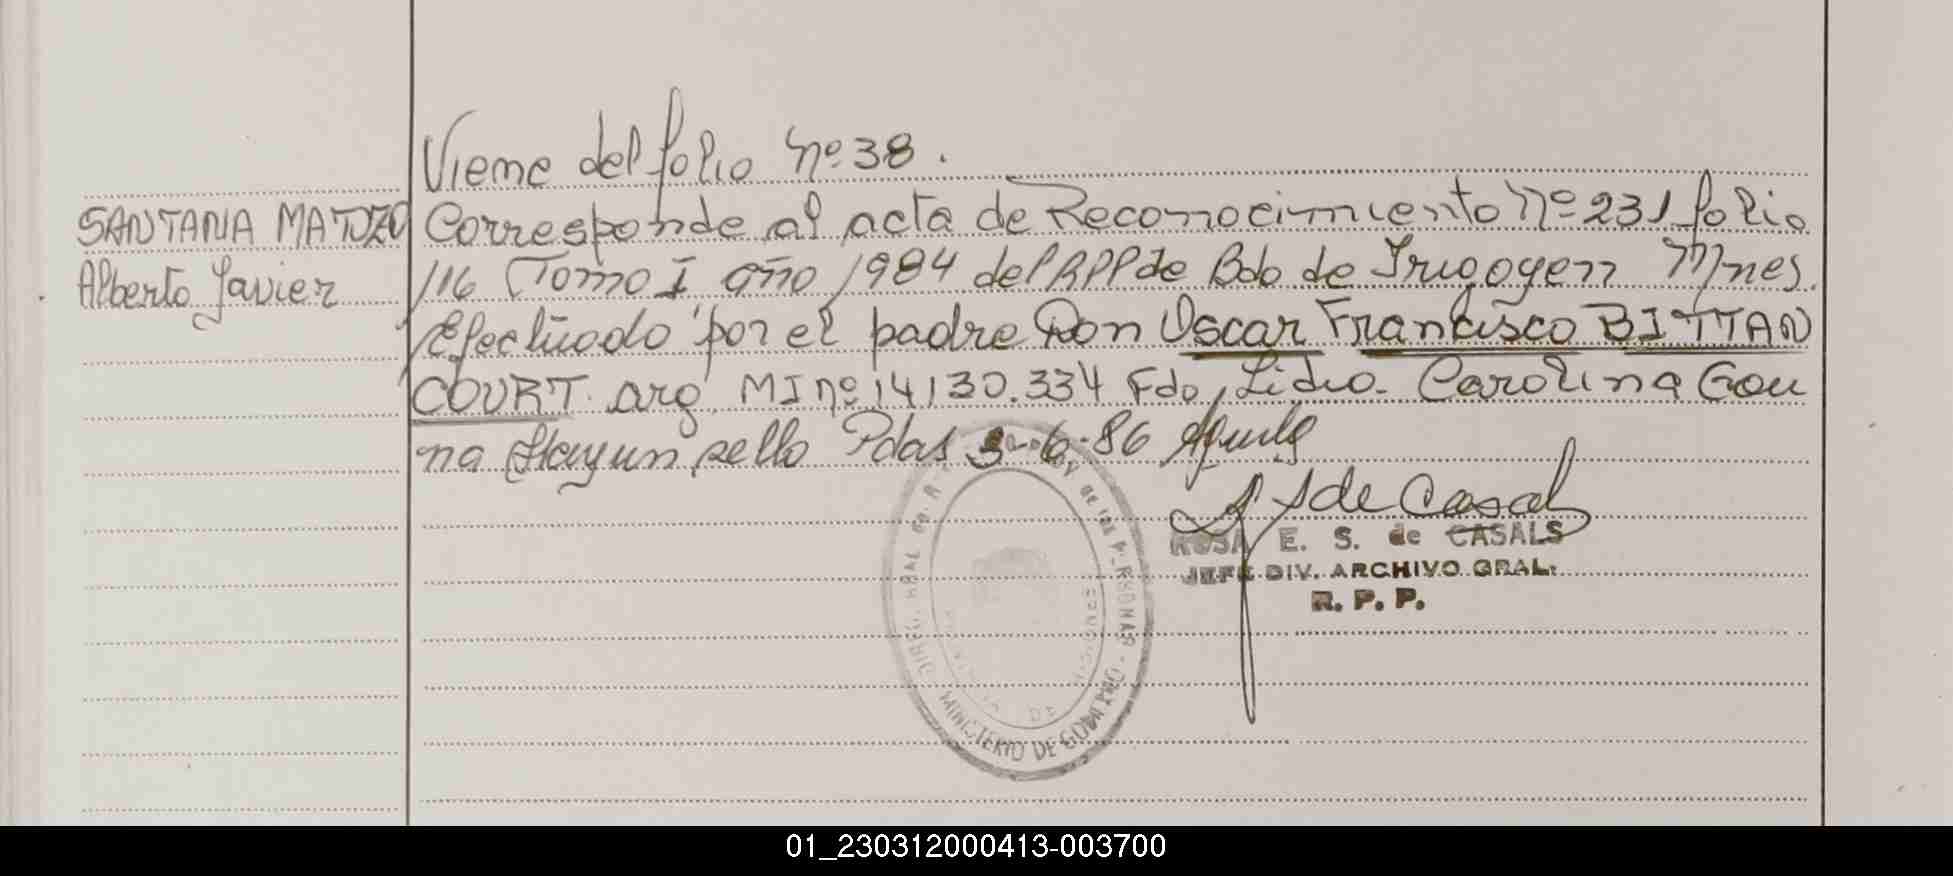 Viene del folio nº 38.
SANTANA MATOZO
Alberto Javier
Corresponde al acta de Reconocimiento Nº 231 folio
116 Tomo I año 1984 del RPP de Bdo de Irigoyen Mnes.
Efectuado por el padre Don Oscar Francisco BITTAN
COURT. arg. MI nº 14130.334 Fdo, Lidia Carolina Gou
na sello Pdas 3-6-86
de Casals
ROSA E. S. de CASALS
JEFE DIV. ARCHIVO GRAL.
R. P. P.
de las PERSONAS
MINISTERIO DE GOBIERNO
01_230312000413-003700